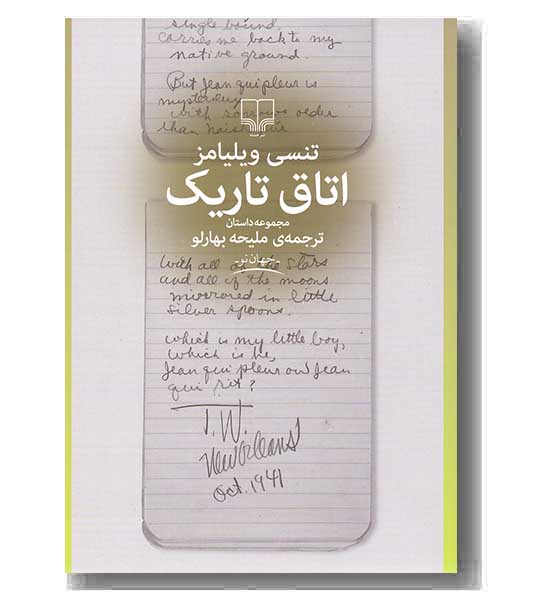 single bound,
carries me back to my
native ground.
But Jean qui pleur is
mysteriey
with sorrows older
than
تنسی ویلیامز
اتاق تاریک
مجموعه داستان
ترجمه‌ی ملیحه بهارلو
جهان نو
with all of the stars
and all of the moons
mirrored in little
silver spoons.
which is my little boy,
which is he,
Jean qui pleur ou Jean
qui rit?
T.W.
New Orleans
Oct. 1941